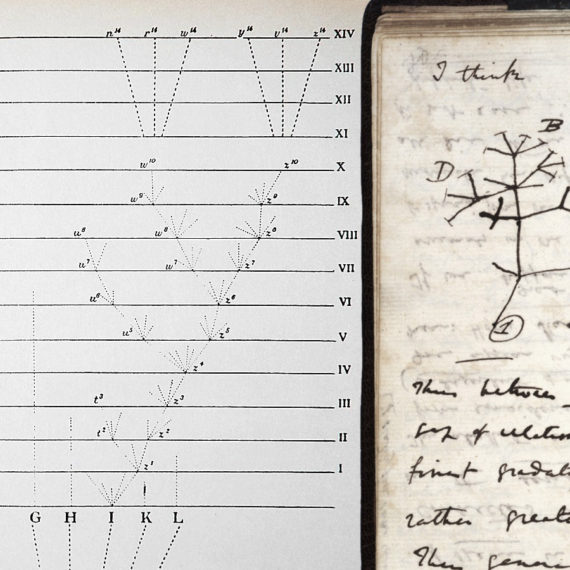 n¹⁴ r¹⁴ w¹⁴ y¹⁴ v¹⁴ z¹⁴ XIV
XIII
XII
XI
w¹⁰ z¹⁰ X
w⁹ z⁹ IX
u⁸ w⁸ z⁸ VIII
u⁷ w⁷ z⁷ VII
u⁶ z⁶ VI
u⁵ z⁵ V
z⁴ IV
t³ z³ III
t² z² II
z¹ I
G H I K L
I think
B
D
1
Thus between
gap of relation
finest gradat
rather greate
Thus genera